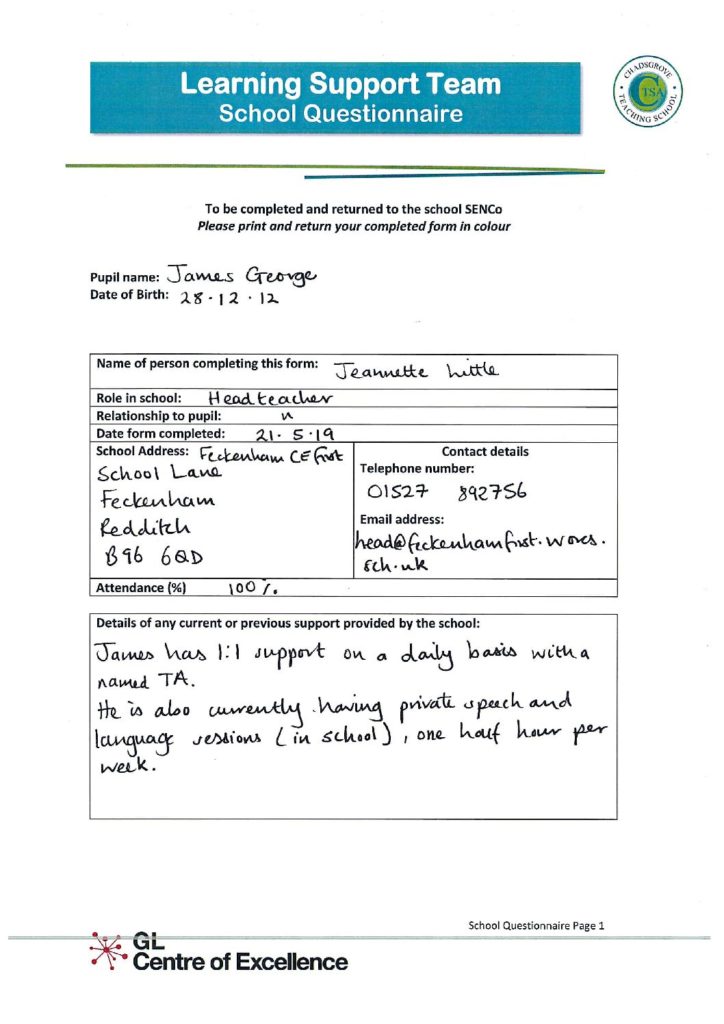 Learning Support Team
School Questionnaire
CHADSGROVE
TSA
TEACHING SCHOOL
To be completed and returned to the school SENCo
Please print and return your completed form in colour
Pupil name: James George
Date of Birth: 28.12.12
Name of person completing this form: Jeannette Little
Role in school: Headteacher
Relationship to pupil: "
Date form completed: 21.5.19
School Address: Feckenham CE First
School Lane
Feckenham
Redditch
B96 6QD
Contact details
Telephone number:
01527 892756
Email address:
head@feckenhamfirst.worcs.
sch.uk
Attendance (%) 100%
Details of any current or previous support provided by the school:
James has 1:1 support on a daily basis with a
named TA.
He is also currently having private speech and
language sessions (in school), one half hour per
week.
School Questionnaire Page 1
GL
Centre of Excellence